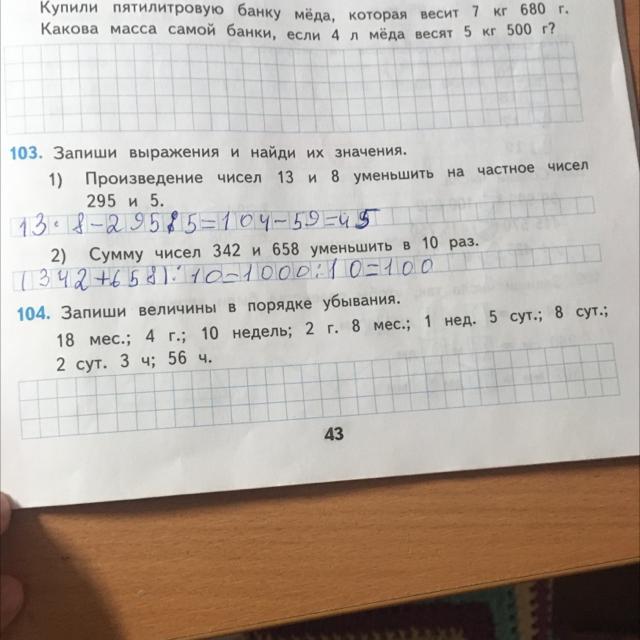 Купили пятилитровую банку мёда, которая весит 7 кг 680 г.
Какова масса самой банки, если 4 л мёда весят 5 кг 500 г?
103. Запиши выражения и найди их значения.
1) Произведение чисел 13 и 8 уменьшить на частное чисел
295 и 5.
13·8-295:5=104-59=45
2) Сумму чисел 342 и 658 уменьшить в 10 раз.
(342+658):10=1000:10=100
104. Запиши величины в порядке убывания.
18 мес.; 4 г.; 10 недель; 2 г. 8 мес.; 1 нед. 5 сут.; 8 сут.;
2 сут. 3 ч; 56 ч.
43